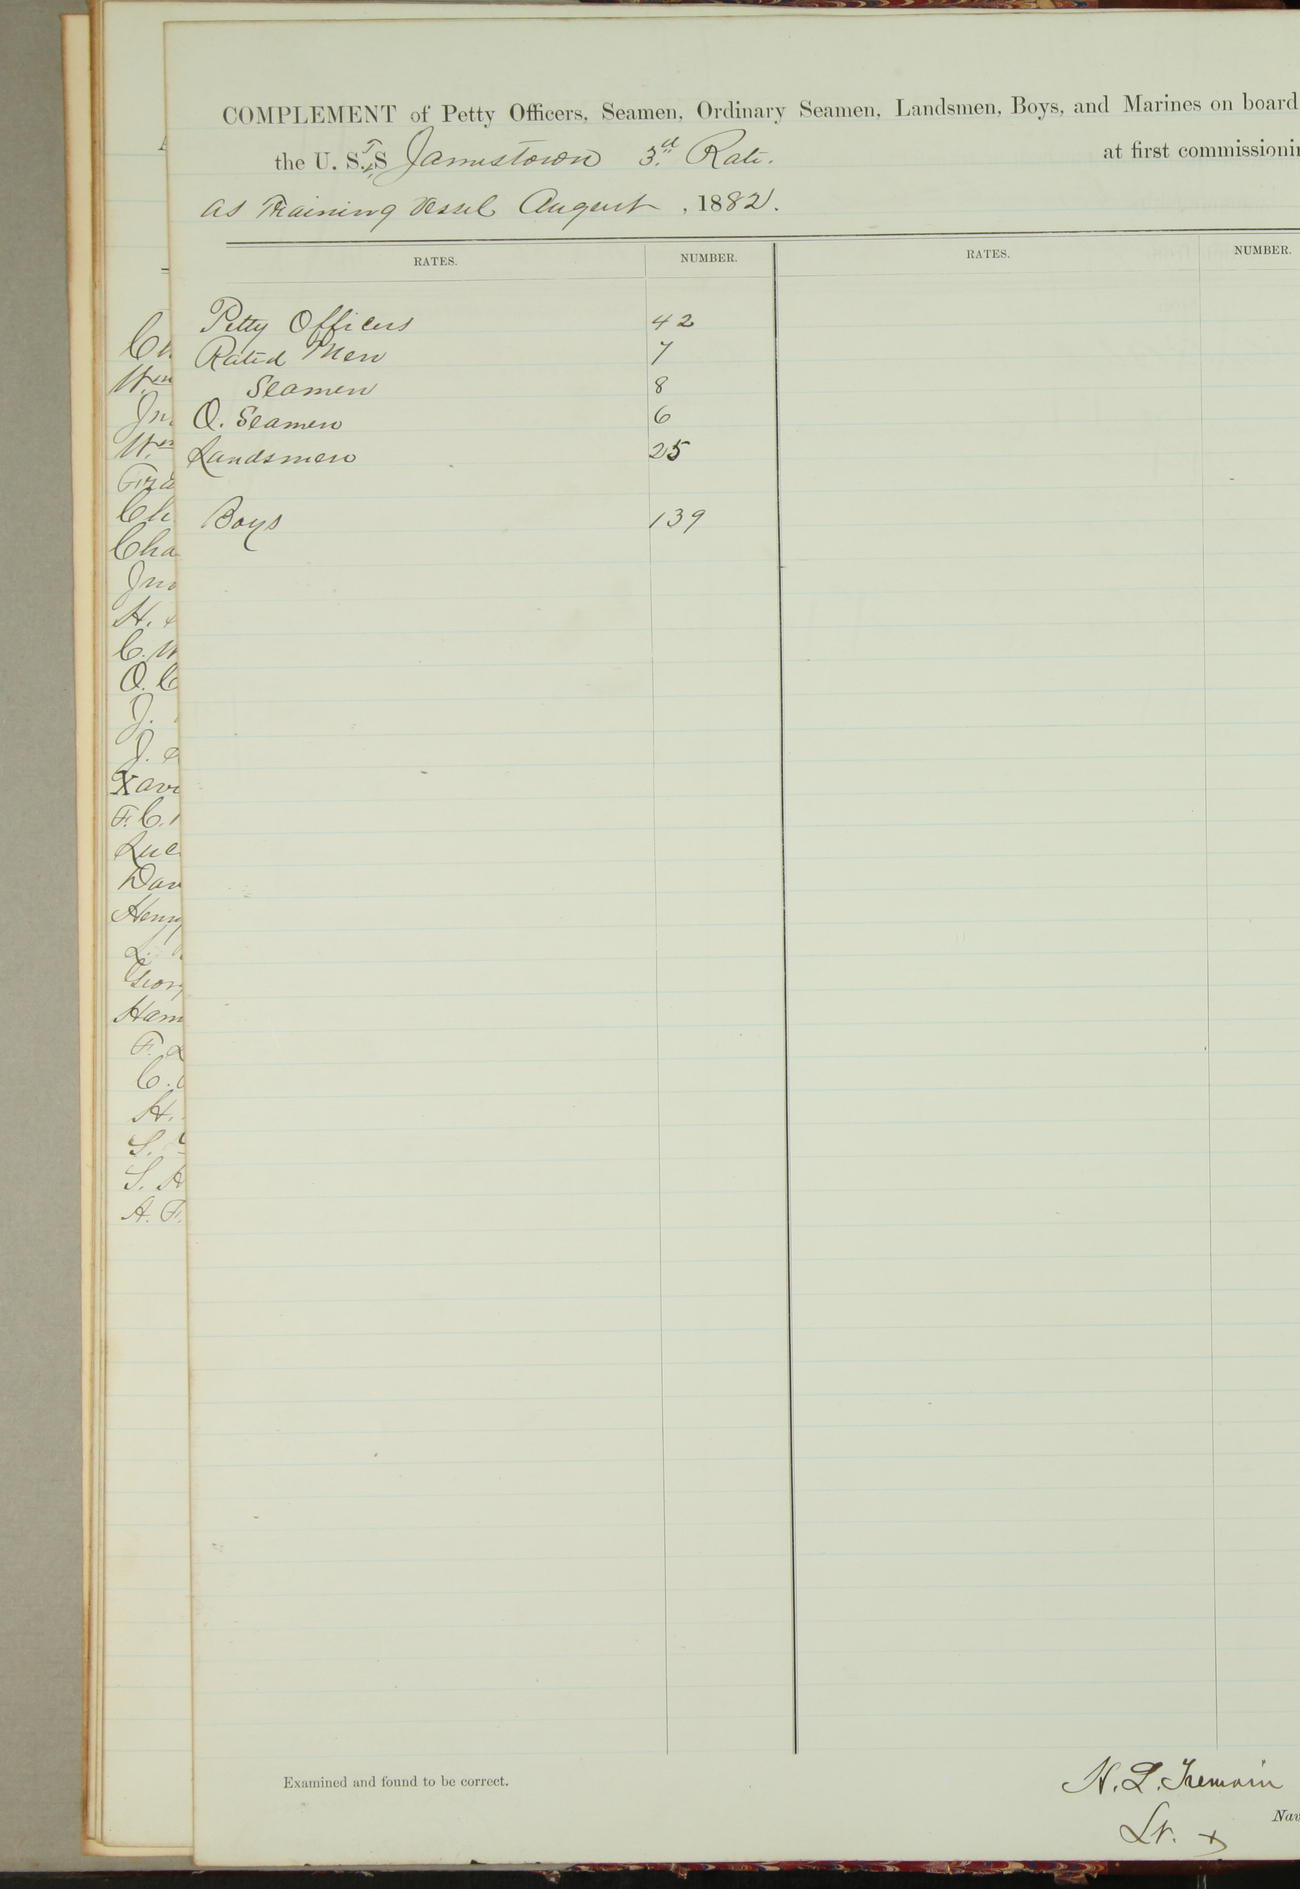 COMPLEMENT of Petty Officers, Seamen, Ordinary Seamen, Landsmen, Boys, and Marines on board
the U. S. T. S Jamestown 3.d Rate. at first commissionin
as Training Vessel August , 1882.
RATES. NUMBER. RATES. NUMBER.
Petty Officers 42
Rated Men 7
Seamen 8
O. Seamen 6
Landsmen 25
Boys 139
Wm
Jn
Wm
Fra
Ch
Cha
Jno
H.
C. W
O. C
J.
J.
Xavi
F. C.
Luc
Dav
Henry
L.
Georg
Ham
F. L
C.
H.
S.
S. H
A. F.
Examined and found to be correct.
H. L. Tremain
Lt. Nav